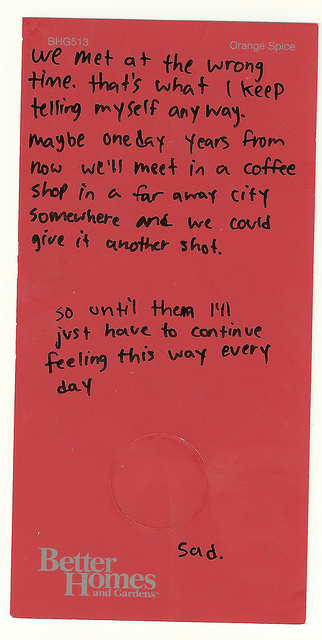 BHG513
Orange Spice
we met at the wrong
time. that's what I keep
telling myself anyway.
maybe one day years from
now we'll meet in a coffee
shop in a far away city
somewhere and we could
give it another shot.
so until them I'll
just have to continue
feeling this way every
day
sad.
Better
Homes
and Gardens